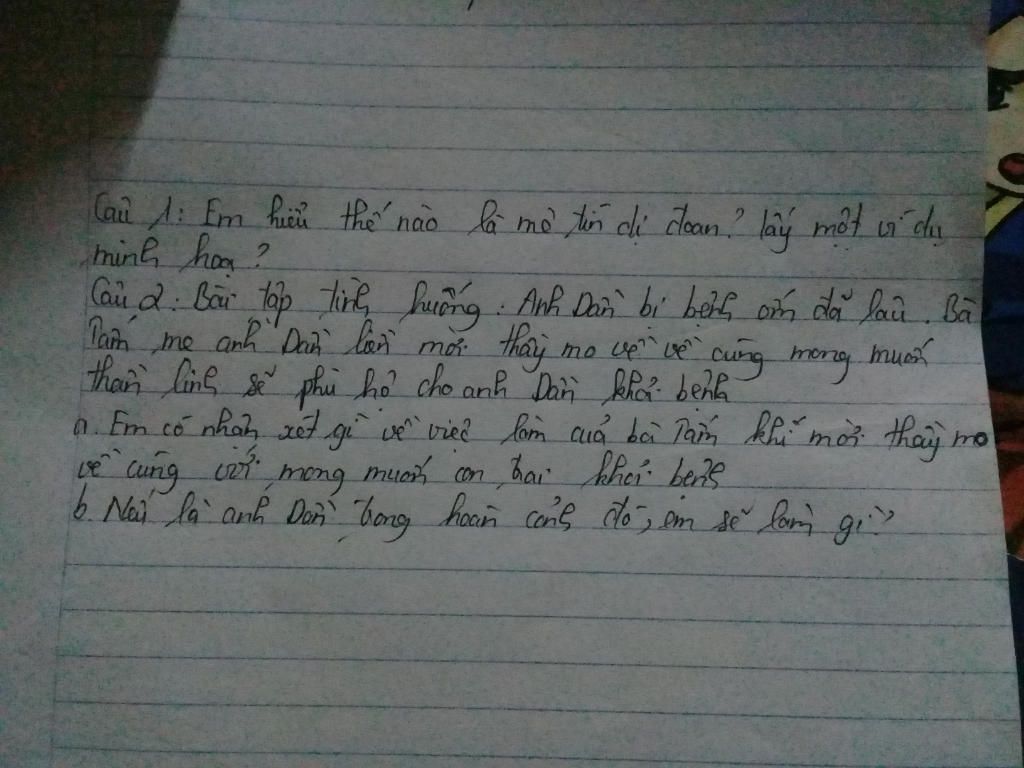 Câu 1: Em hiểu thế nào là mê tín dị đoan? lấy một ví dụ
minh hoạ?
Câu 2: Bài tập tình huống: Anh Dần bị bệnh ốm đã lâu. Bà
Tám mẹ anh Dần liền mời thầy mo về về cúng mong muốn
thần linh sẽ phù hộ cho anh Dần khỏi bệnh
a. Em có nhận xét gì về việc làm của bà Tám khi mời thầy mo
về cúng với mong muốn con trai khỏi bệnh
b. Nếu là anh Dần trong hoàn cảnh đó, em sẽ làm gì?